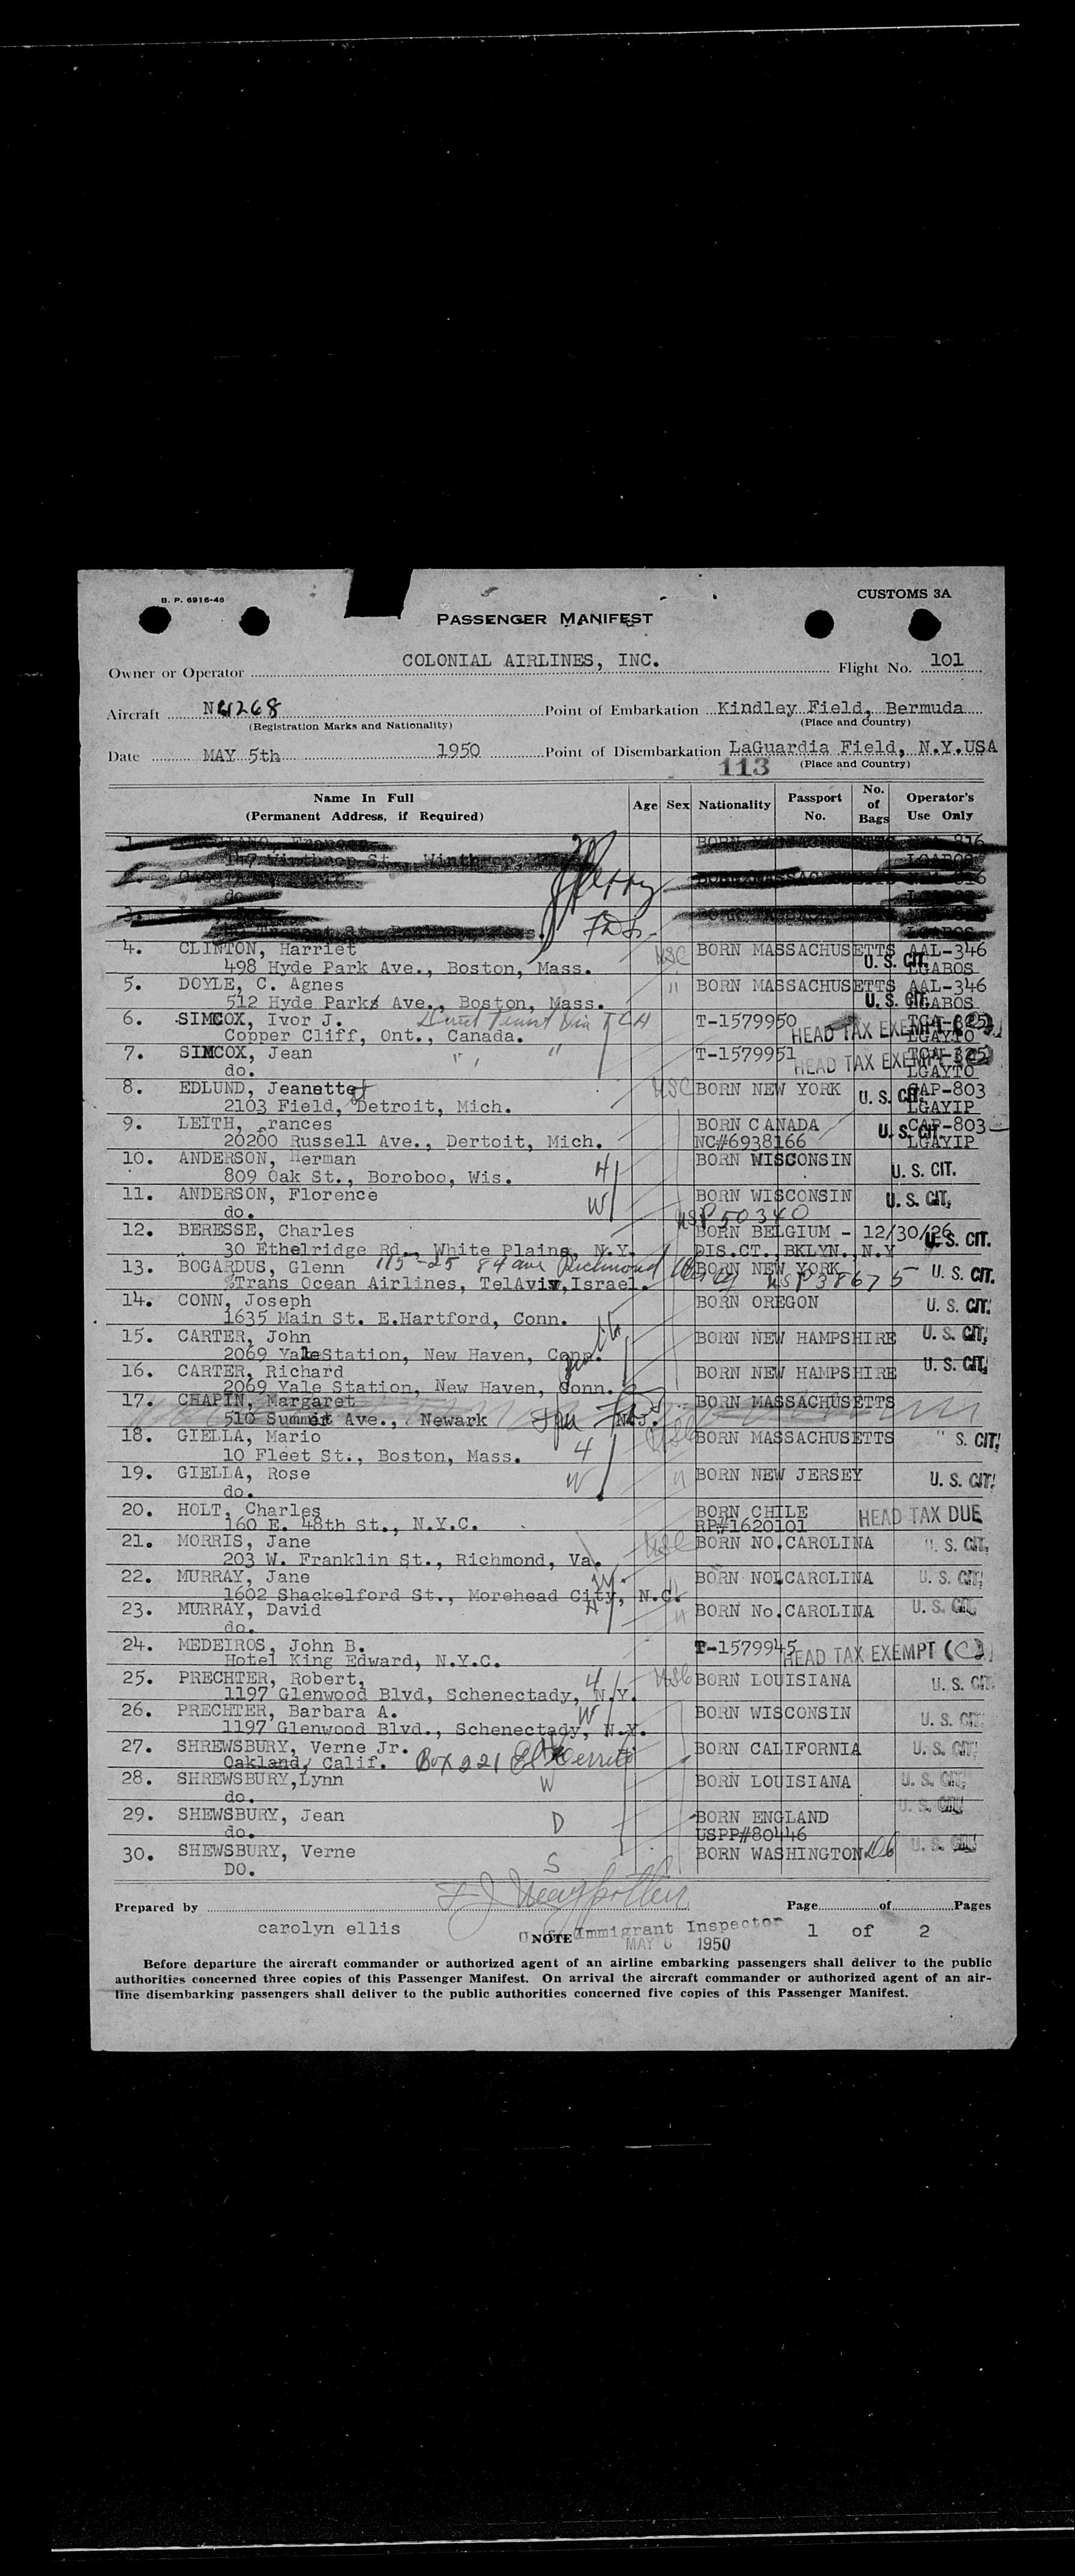 B. P. 6916-48
CUSTOMS 3A
PASSENGER MANIFEST
Owner or Operator COLONIAL AIRLINES, INC. Flight No. 101
Aircraft N 4268 Point of Embarkation Kindley Field, Bermuda
(Registration Marks and Nationality) (Place and Country)
Date MAY 5th 1950 Point of Disembarkation LaGuardia Field, N.Y.USA
113 (Place and Country)
Name In Full (Permanent Address, if Required) Age Sex Nationality Passport No. No. of Bags Operator's Use Only
1.
149 Winthrop St., Winthrop
do.
3.
4. CLINTON, Harriet USC BORN MASSACHUSETTS AAL-346
498 Hyde Park Ave., Boston, Mass. U. S. CIT. LGABOS
5. DOYLE, C. Agnes " BORN MASSACHUSETTS AAL-346
512 Hyde Park Ave., Boston, Mass. U. S. CIT. LGABOS
6. SIMCOX, Ivor J. Via TCA T-1579950 TCA-325
Copper Cliff, Ont., Canada. HEAD TAX EXEMPT (C) LGAYTO
7. SIMCOX, Jean " " T-1579951 TCA-325
do. HEAD TAX EXEMPT (C) LGAYTO
8. EDLUND, Jeanette USC BORN NEW YORK U. S. CIT. CAP-803
2103 Field, Detroit, Mich. LGAYIP
9. LEITH, rances BORN CANADA U. S. CIT. CAP-803
20200 Russell Ave., Dertoit, Mich. NC#6938166 LGAYIP
10. ANDERSON, Herman H BORN WISCONSIN
809 Oak St., Boroboo, Wis. U. S. CIT.
11. ANDERSON, Florence W BORN WISCONSIN U. S. CIT.
do. USP 50340
12. BERESSE, Charles BORN BELGIUM - 12/30/26
30 Ethelridge Rd., White Plains, N.Y. DIS.CT., BKLYN., N.Y U. S. CIT.
13. BOGARDUS, Glenn 115-25 84 ave Richmond BORN NEW YORK USP38675 U. S. CIT.
%Trans Ocean Airlines, TelAviv, Israel.
14. CONN, Joseph BORN OREGON U. S. CIT.
1635 Main St. E.Hartford, Conn.
15. CARTER, John BORN NEW HAMPSHIRE U. S. CIT.
2069 YaleStation, New Haven, Conn.
16. CARTER, Richard BORN NEW HAMPSHIRE U. S. CIT.
2069 Yale Station, New Haven, Conn.
17. CHAPIN, Margaret BORN MASSACHUSETTS
510 Summit Ave., Newark N.J.
18. GIELLA, Mario H USC BORN MASSACHUSETTS S. CIT.
10 Fleet St., Boston, Mass.
19. GIELLA, Rose W " BORN NEW JERSEY U. S. CIT.
do.
20. HOLT, Charles BORN CHILE HEAD TAX DUE
160 E. 48th St., N.Y.C. RP#1620101
21. MORRIS, Jane USC BORN NO.CAROLINA U. S. CIT.
203 W. Franklin St., Richmond, Va.
22. MURRAY, Jane BORN NO.CAROLINA U. S. CIT.
1602 Shackelford St., Morehead City, N.C.
23. MURRAY, David H " BORN No.CAROLINA U. S. CIT.
do.
24. MEDEIROS, John B. T-1579945
Hotel King Edward, N.Y.C. HEAD TAX EXEMPT (C)
25. PRECHTER, Robert, H USC BORN LOUISIANA U. S. CIT.
1197 Glenwood Blvd, Schenectady, N.Y.
26. PRECHTER, Barbara A. W BORN WISCONSIN U. S. CIT.
1197 Glenwood Blvd., Schenectady, N.Y.
27. SHREWSBURY, Verne Jr. H BORN CALIFORNIA U. S. CIT.
Oakland, Calif. Box 221 El Cerrito
28. SHREWSBURY,Lynn W BORN LOUISIANA U. S. CIT.
do.
29. SHEWSBURY, Jean D BORN ENGLAND U. S. CIT.
do. USPP#80446
30. SHEWSBURY, Verne S BORN WASHINGTON U. S. CIT.
DO.
Prepared by Page of Pages
carolyn ellis 1 of 2
NOTE Immigrant Inspector
MAY 1950
Before departure the aircraft commander or authorized agent of an airline embarking passengers shall deliver to the public
authorities concerned three copies of this Passenger Manifest. On arrival the aircraft commander or authorized agent of an air-
line disembarking passengers shall deliver to the public authorities concerned five copies of this Passenger Manifest.